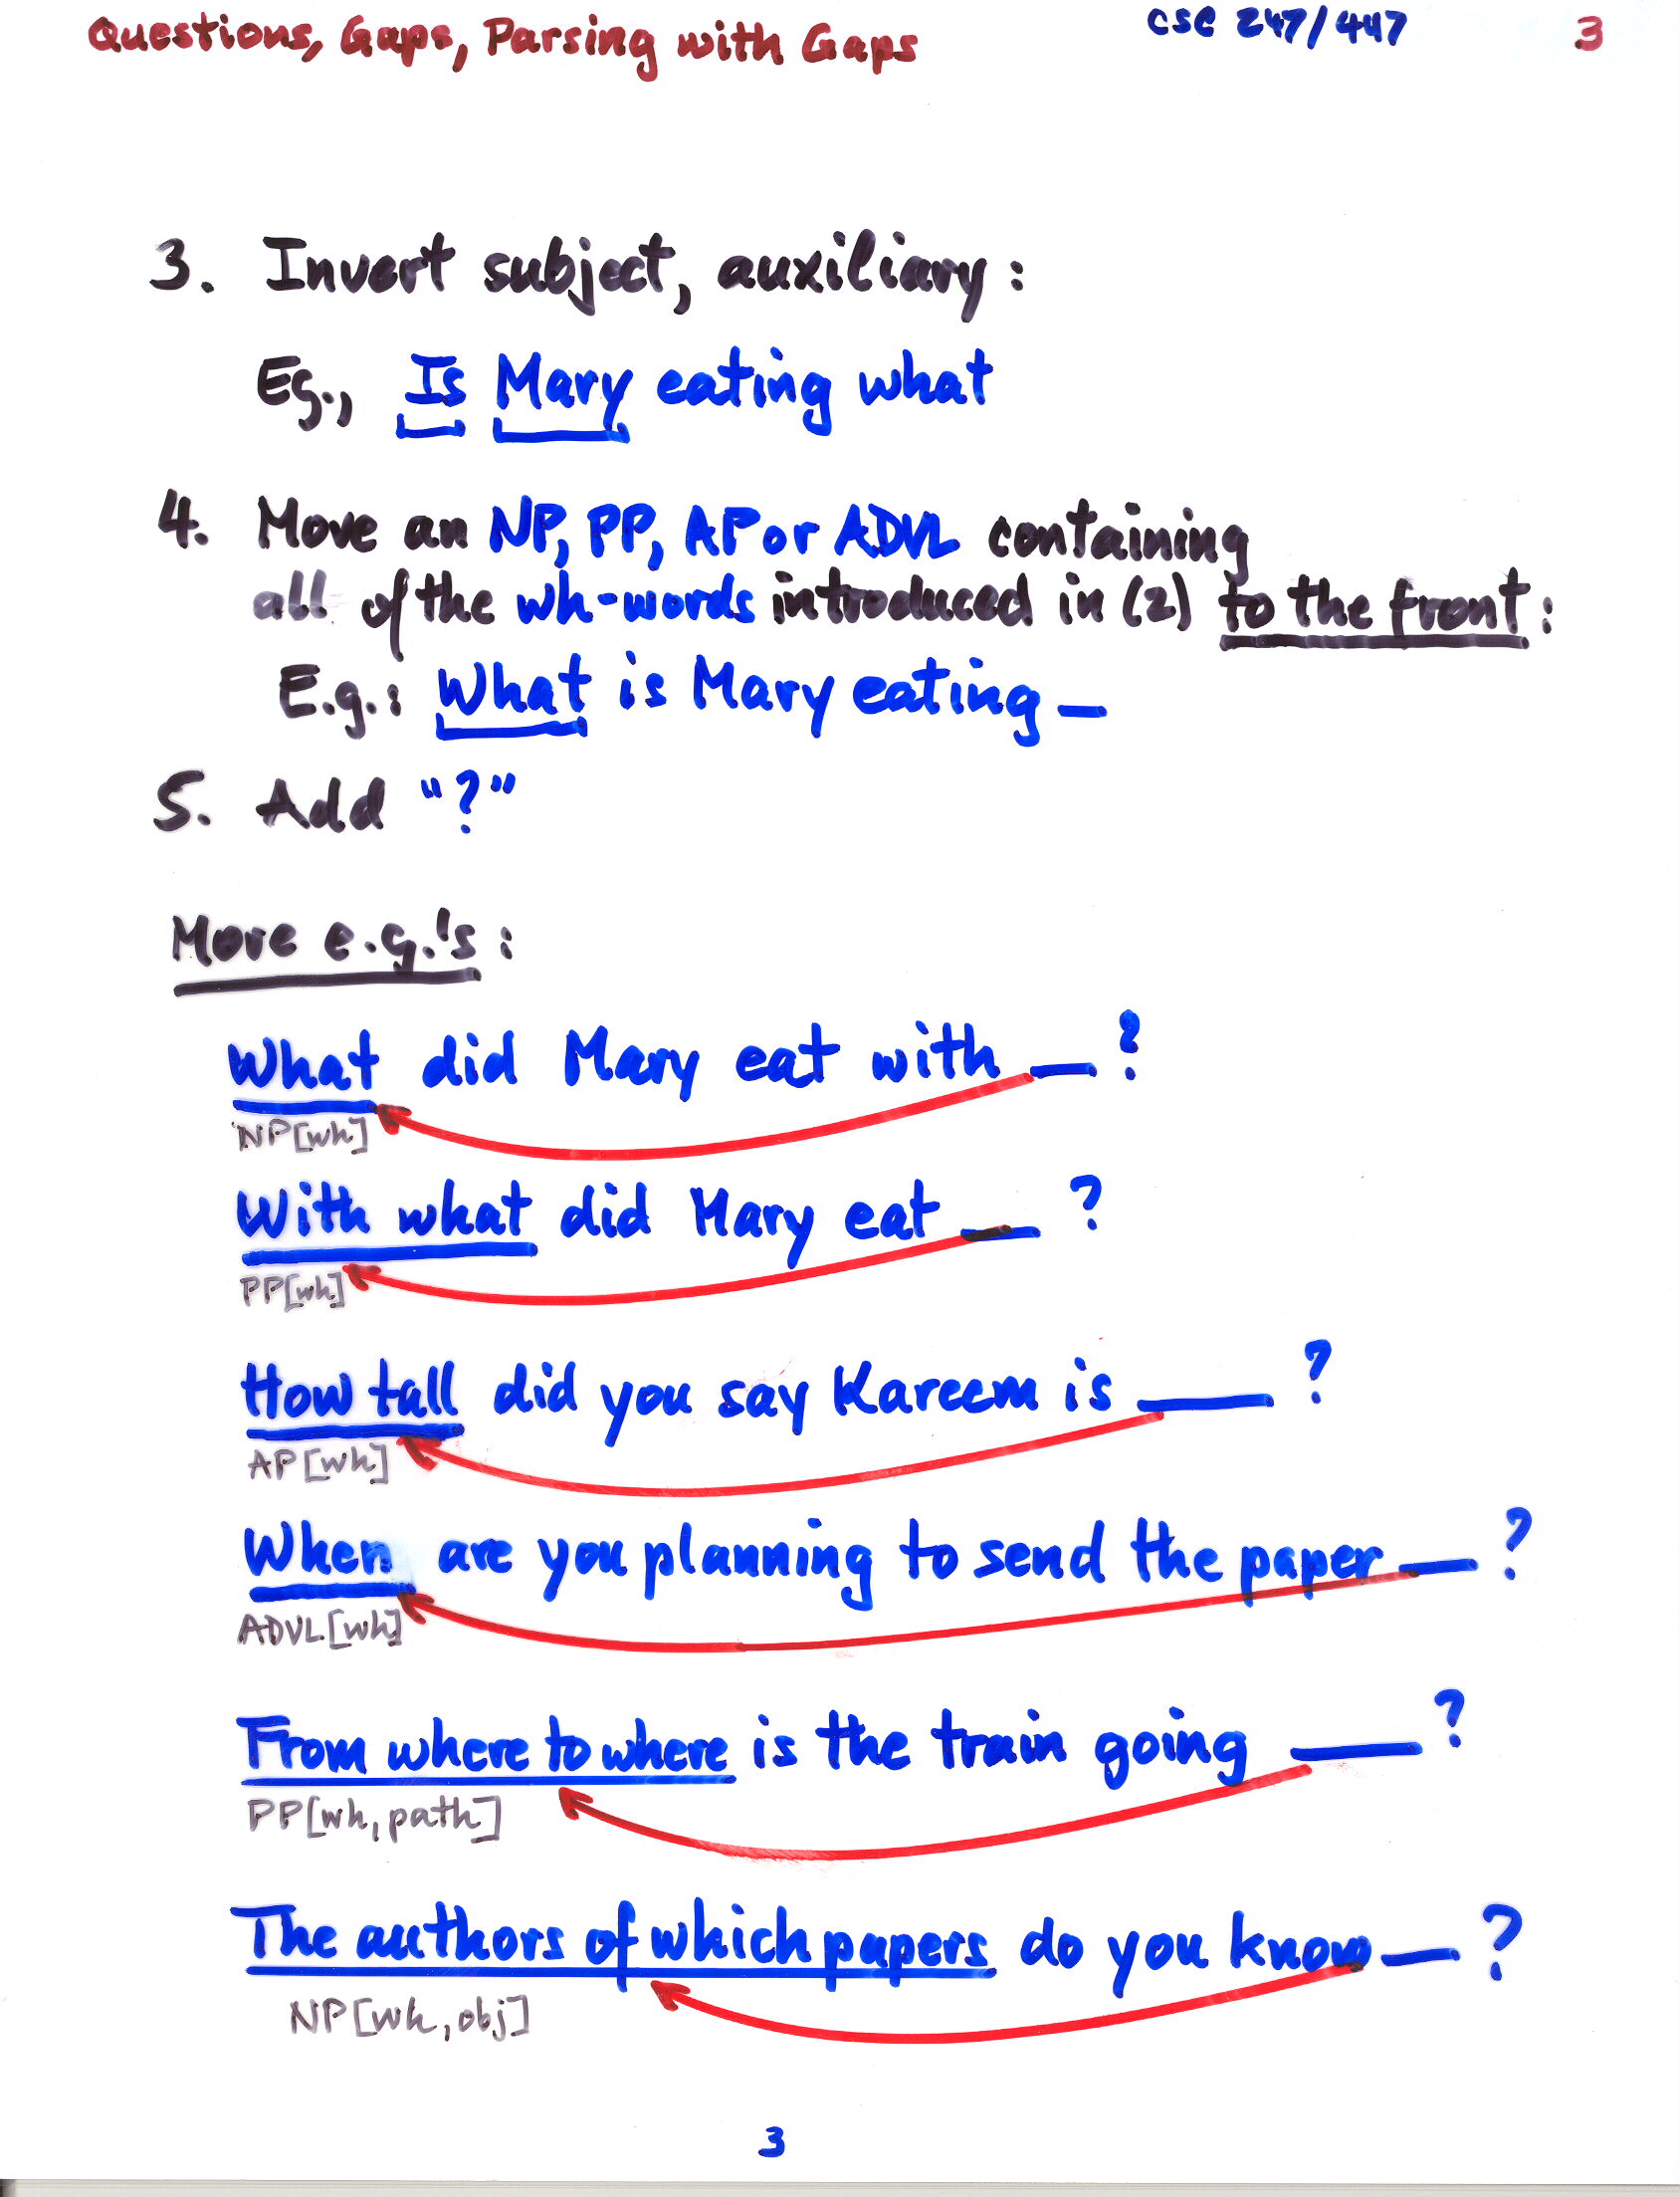 Questions, Gaps, Parsing with Gaps CSC 247/447 3
3. Invert subject, auxiliary:
Eg., Is Mary eating what
4. Move an NP, PP, AP or ADVL containing
all of the wh-words introduced in (2) to the front:
E.g.: What is Mary eating _
5. Add "?"
More e.g.'s:
What did Mary eat with __ ?
NP[wh]
With what did Mary eat __ ?
PP[wh]
How tall did you say Kareem is ___ ?
AP[wh]
When are you planning to send the paper __ ?
ADVL[wh]
From where to where is the train going ___ ?
PP[wh, path]
The authors of which papers do you know __ ?
NP[wh, obj]
3